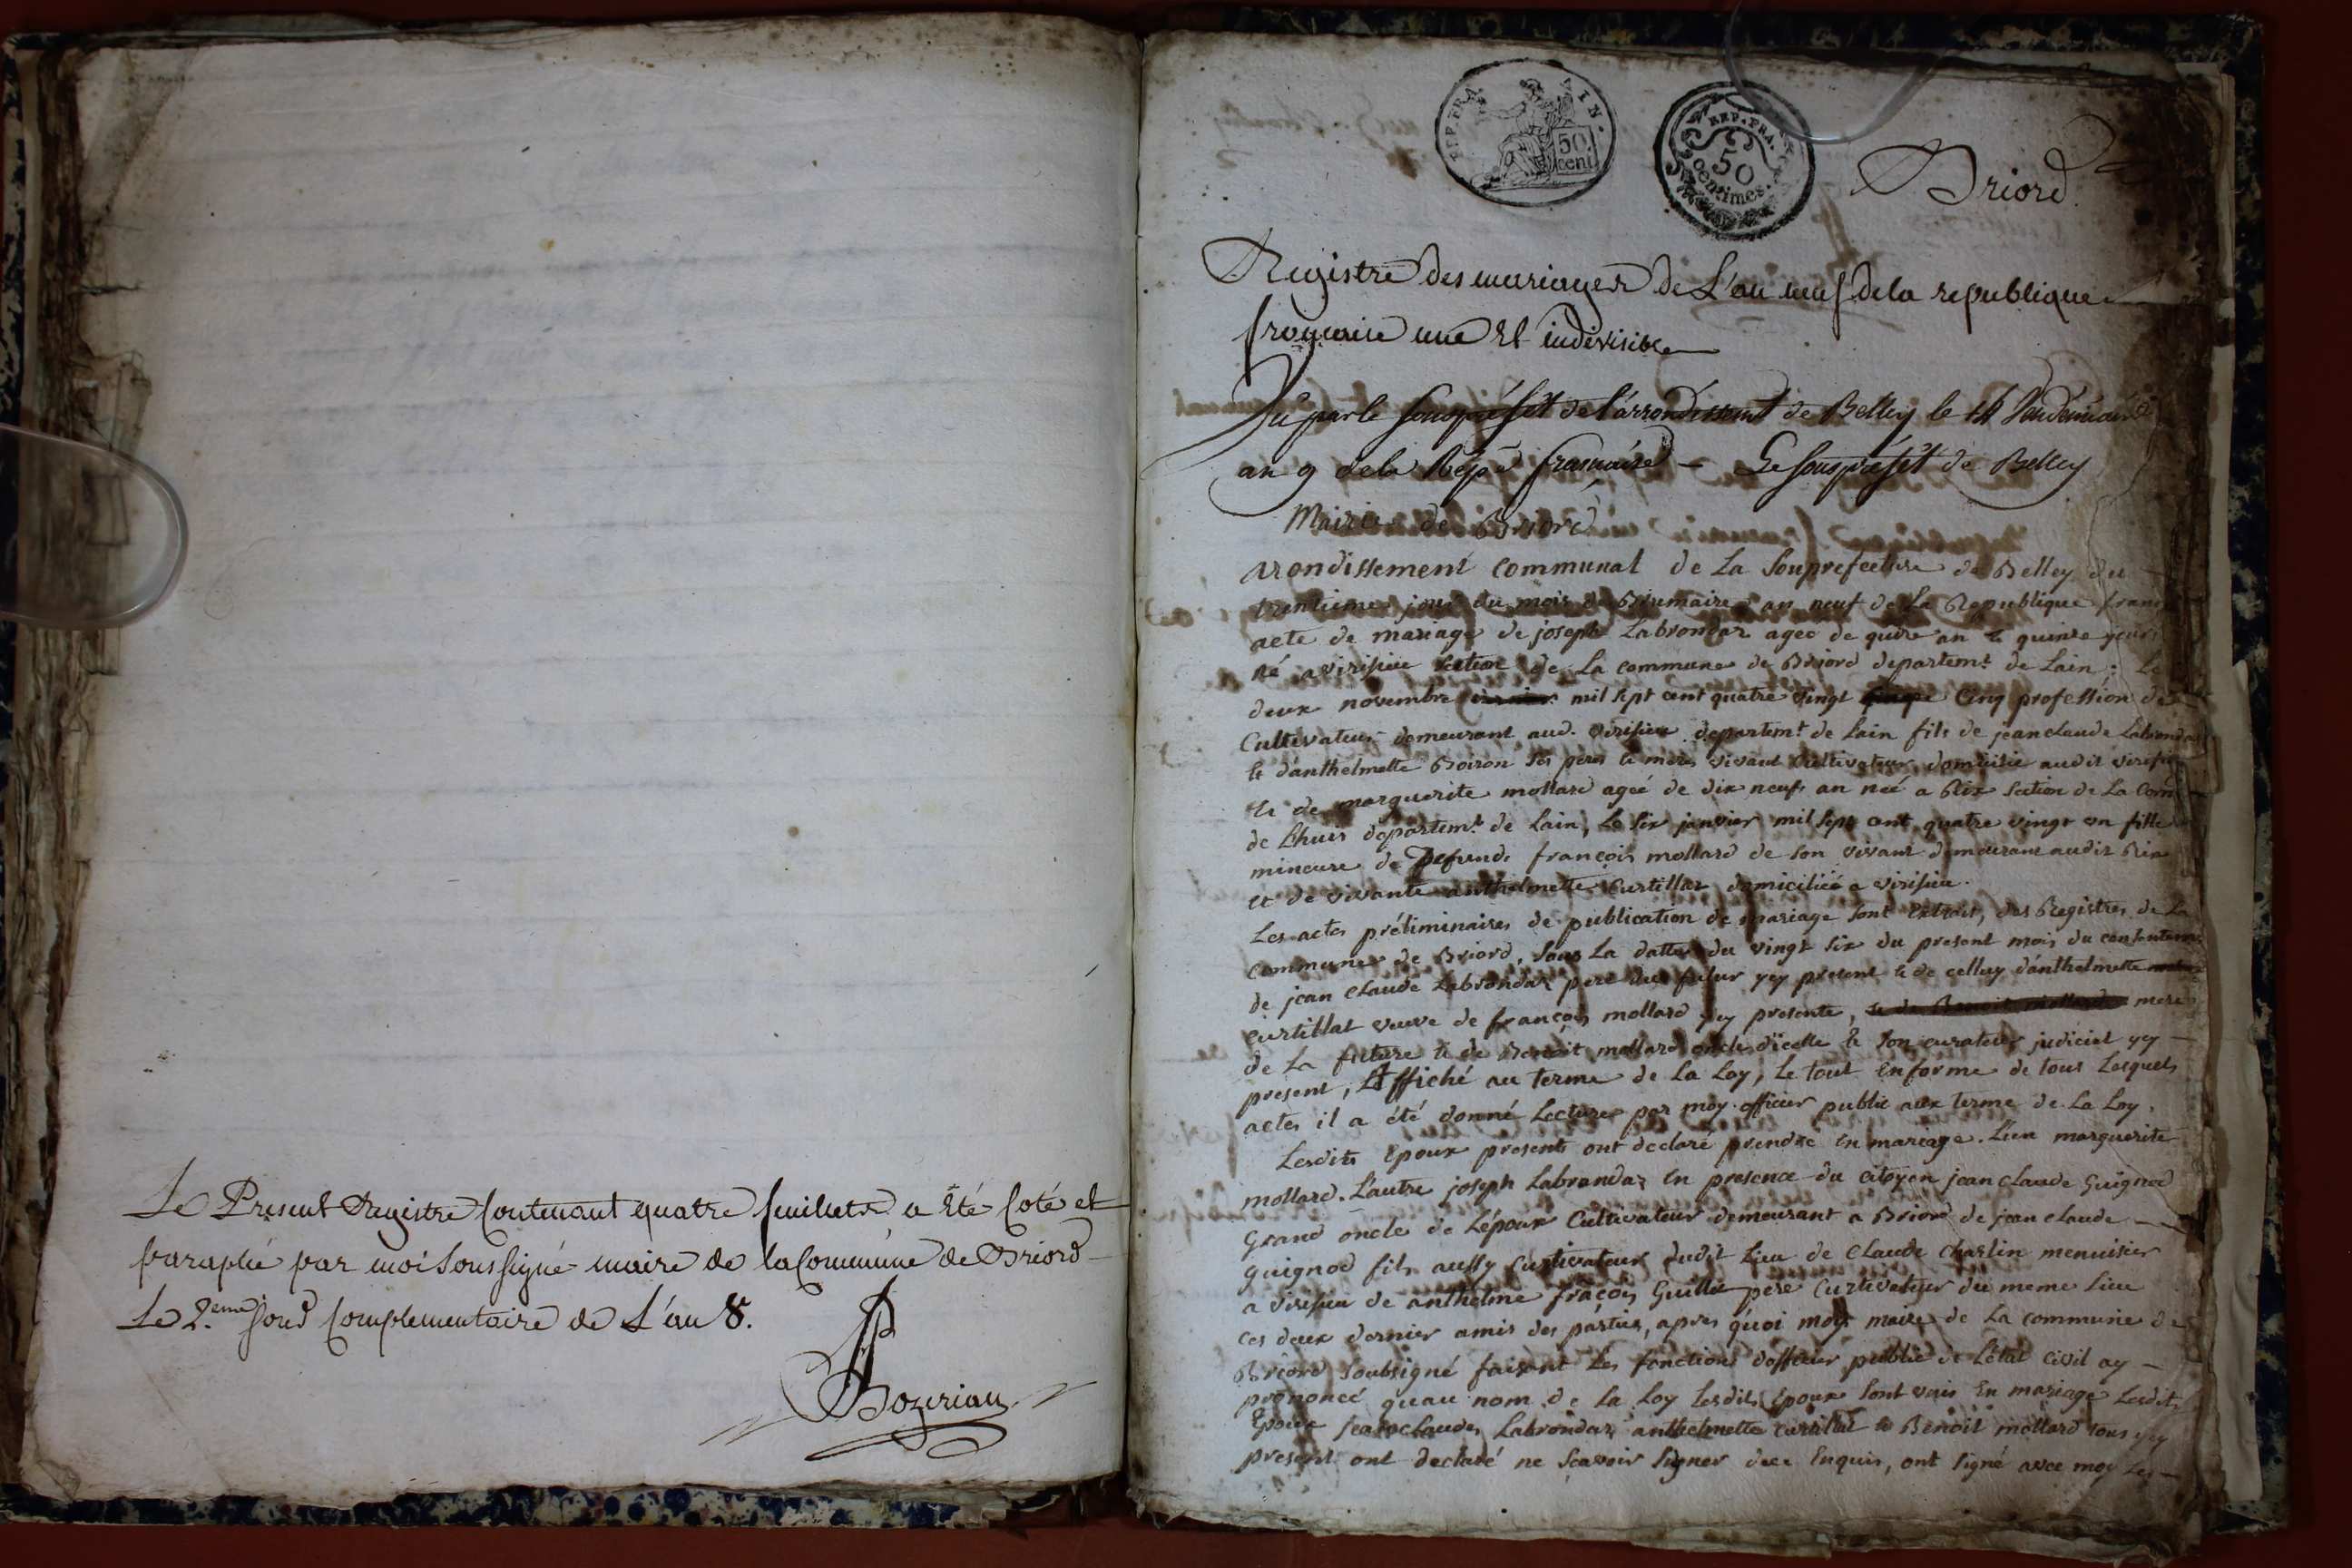 Le Present Registre Contenant quatre feuillets a Eté Coté et
paraphé par moi Soussigné maire de la Commune de Briord
Le 2.eme Jour Complementaire de L'an 8.
Bozerian
REP. FRA.
50
cent
REP. FRA.
50
centimes.
Briord
Registre des mariages de L'an neuf de la republique
francaise une Et indivisible
Vu par le Souspréfèt de l'arrondissemt de Belley le Vendémiaire
an 9 de la Rep. francaise - Le Souspréfèt de Belley
Mairie de Briord
arondissement communal de La Souprefecture de Belley du
trentieme jour du mois de Brumaire an neuf de La Republique franc
acte de mariage de joseph Labrondaz ageé de quize an & quinze jours
né a virisieu section de La commune de Briord departemt de Lain; Le
deux novembre mil sept cent quatre vingt Cinq profession de
Cultivateur demeurant aud. virisieu departemt de Lain fils de jean claude Labrondaz
& d'anthelmette Boiron ses peres & meres vivant Cultivateur domicilié audit virisieu
& de marguerite mollard ageé de dix neuf an neé a Rix section de La Com
de Lhuis departemt de Lain, Le six janvier mil sept cent quatre vingt un fille
mineure de Defund françois mollard de son vivant demeurant audit Rix
et de vivante anthelmette Curtillat domiciliéé a virisieu.
Les actes préliminaires de publication de mariage sont Extrait, des Registres de La
commune de Briord, sous La datte du vingt six du present mois du consenteme
de jean claude Labrondaz pere du futur yey present & de celluy d'anthelmette
curtillat veuve de françois mollard yey presente, mere
de La future & de Benoit mollard oncle d'icelle & son curateur judiciel yey
present, L'Affiché au terme de La Loy, Le tout En forme de tous Lesquels
actes il a été donné Lecture par moy officier public aux terme de La Loy.
Lesdits Epoux presents ont declaré prendre En mareage. L'un marguerite
mollard. L'autre joseph Labrondaz En presence du citoyen jean claude Guignod
Grand oncle de L'époux Cultivateur demeurant a Briord de jean claude
guignod fils aussy curtivateur dudit Lieu de Claude charlin menuisier
a virisieu de anthelme fraçois Guillot pere curtivateur du meme Lieu
ces deux dernier amis des parties, apres quoi moy maire de La commune de
Briord soubsigné faisant Les fonctions d'officier public de L'etat civil ay
prononcé qu'au nom de La Loy Lesdits Epoux sont unis En mariage Lesdits
Epoux jean claude Labrondaz anthelmette curtillat & Benoit mollard tous yey
present ont declaré ne sçavoir signer de ce Enquis, ont signé avec moy Les